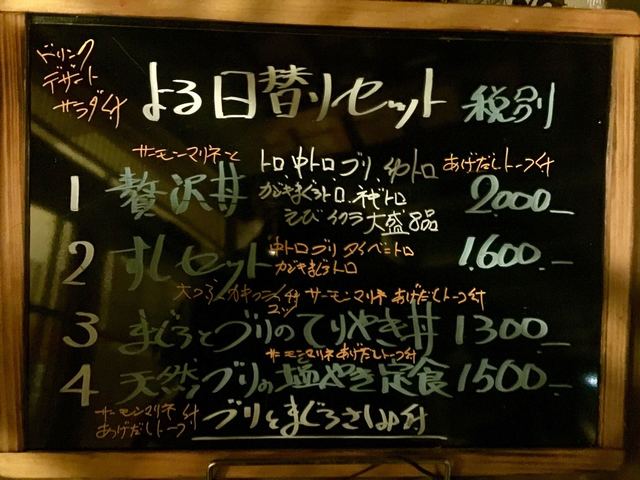 ドリンク
デザート
サラダ付
よる日替りセット 税別
サーモンマリネと
1 贅沢丼 トロ、中トロ ブリ、ゆトロ あげだしトーフ付 2,000
かじきまぐろトロ、ネギトロ
えび イクラ 大盛8品
2 すしセット 中トロ ブリ タイ 1,600
かじきまぐろトロ
サーモンマリネ あげだしトーフ付
3 まぐろとブリのてりやき丼 1300
サーモンマリネ あげだしトーフ付
4 天然ブリの塩やき定食 1500
サーモンマリネ付
あげだしトーフ
ブリとまぐろさしみ付